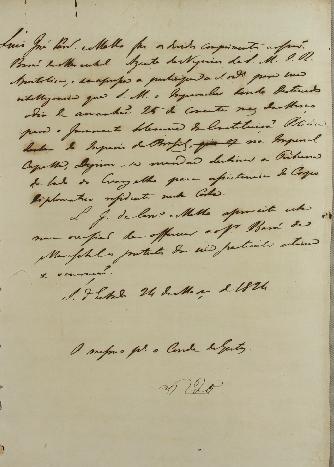 Luis José Carv.º e Mello faz os devidos comprimentos ao Snr.
Barão de Mareschal Agente de Negocios de S. M. I. R.
Apostolica, e se apressa a participar-lhe p.ª sua
intelligencia que S. M. o Imperador tendo Destinado
o dia de amanhã 25 do corrente mez de Março
para o Juramento Solemne da Constituição Politica
do Imperio do Brasil, na Imperial
Capella, Dignou-se mandar destinar a Tribuna
do lado do Evangelho para assistencia do Corpo
Diplomatico residente nesta Corte.
L. J. de Carv.º e Mello aproveita esta
nova occasião de offerecer ao Snr. Barão de
Mareschal os protestos da sua particular estima
e veneração.
S. d'Estado 24 de Março de 1824
O mesmo p.ª o Conde de Gestas